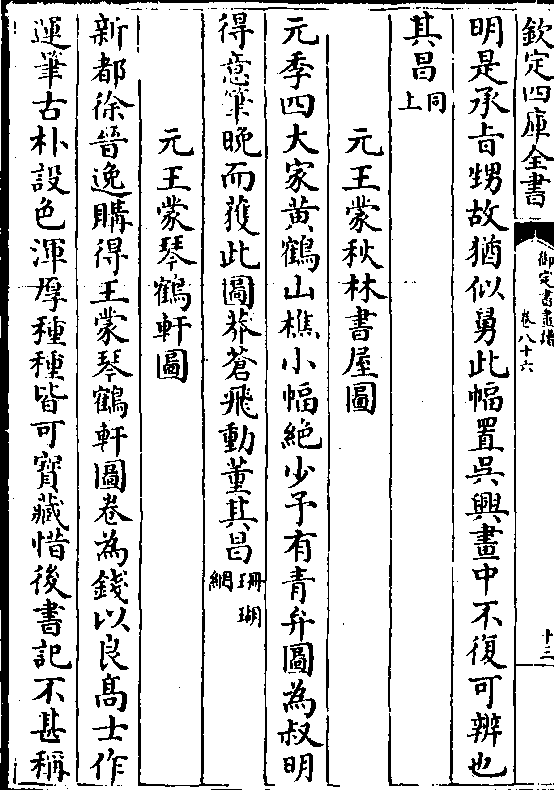 欽定四庫全書
御定書畫譜
卷八十六
十三
明是承旨甥故猶似舅此幅置吳興畫中不復可辨也
其昌同上
元王蒙秋林書屋圖
元季四大家黄鶴山樵小幅絶少予有青弁圖為叔明
得意筆晚而獲此圖莽蒼飛動董其昌珊瑚網
元王蒙琴鶴軒圖
新都徐晉逸購得王蒙琴鶴軒圖卷為錢以良髙士作
運筆古朴設色渾厚種種皆可寳藏惜後書記不甚稱